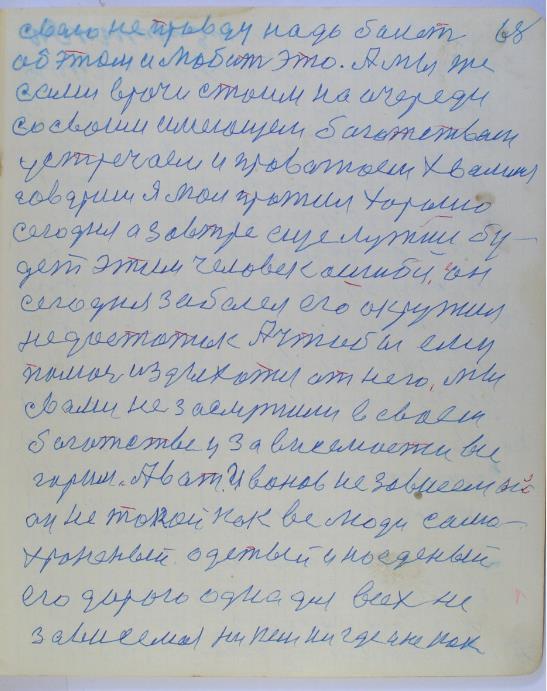 68
свою неправду надь бают
об этом и любит это. А мы же
сами врочи стоим на очереди
со своим имеющем богатствам
устречаем и проважаем хвалим
говорим я мол прожил хорошо
сегодня а завтре еще лутши бу-
дет этим человек ошибй, он
сегодня заболел его окружил
недостаток А чтобы ему
помоч издыхоти от него, мы
свами не заслужили в своем
богатстве и зависемости вы
горим. А вот Иванов не зависемый
он не токой как ве люди само-
хронный одетый и поеденый
его дорого одна для всех не
зависемоя ни кем ни где а не как